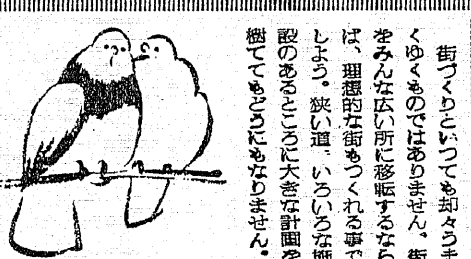 街づくりといつても却々うま
くゆくものではありません。街
をみんな広い所に移転するなら
ば、理想的な街もつくれる事で
しよう。狭い道、いろいろな施
設のあるところに大きな計画を
樹ててもどうにもなりません。